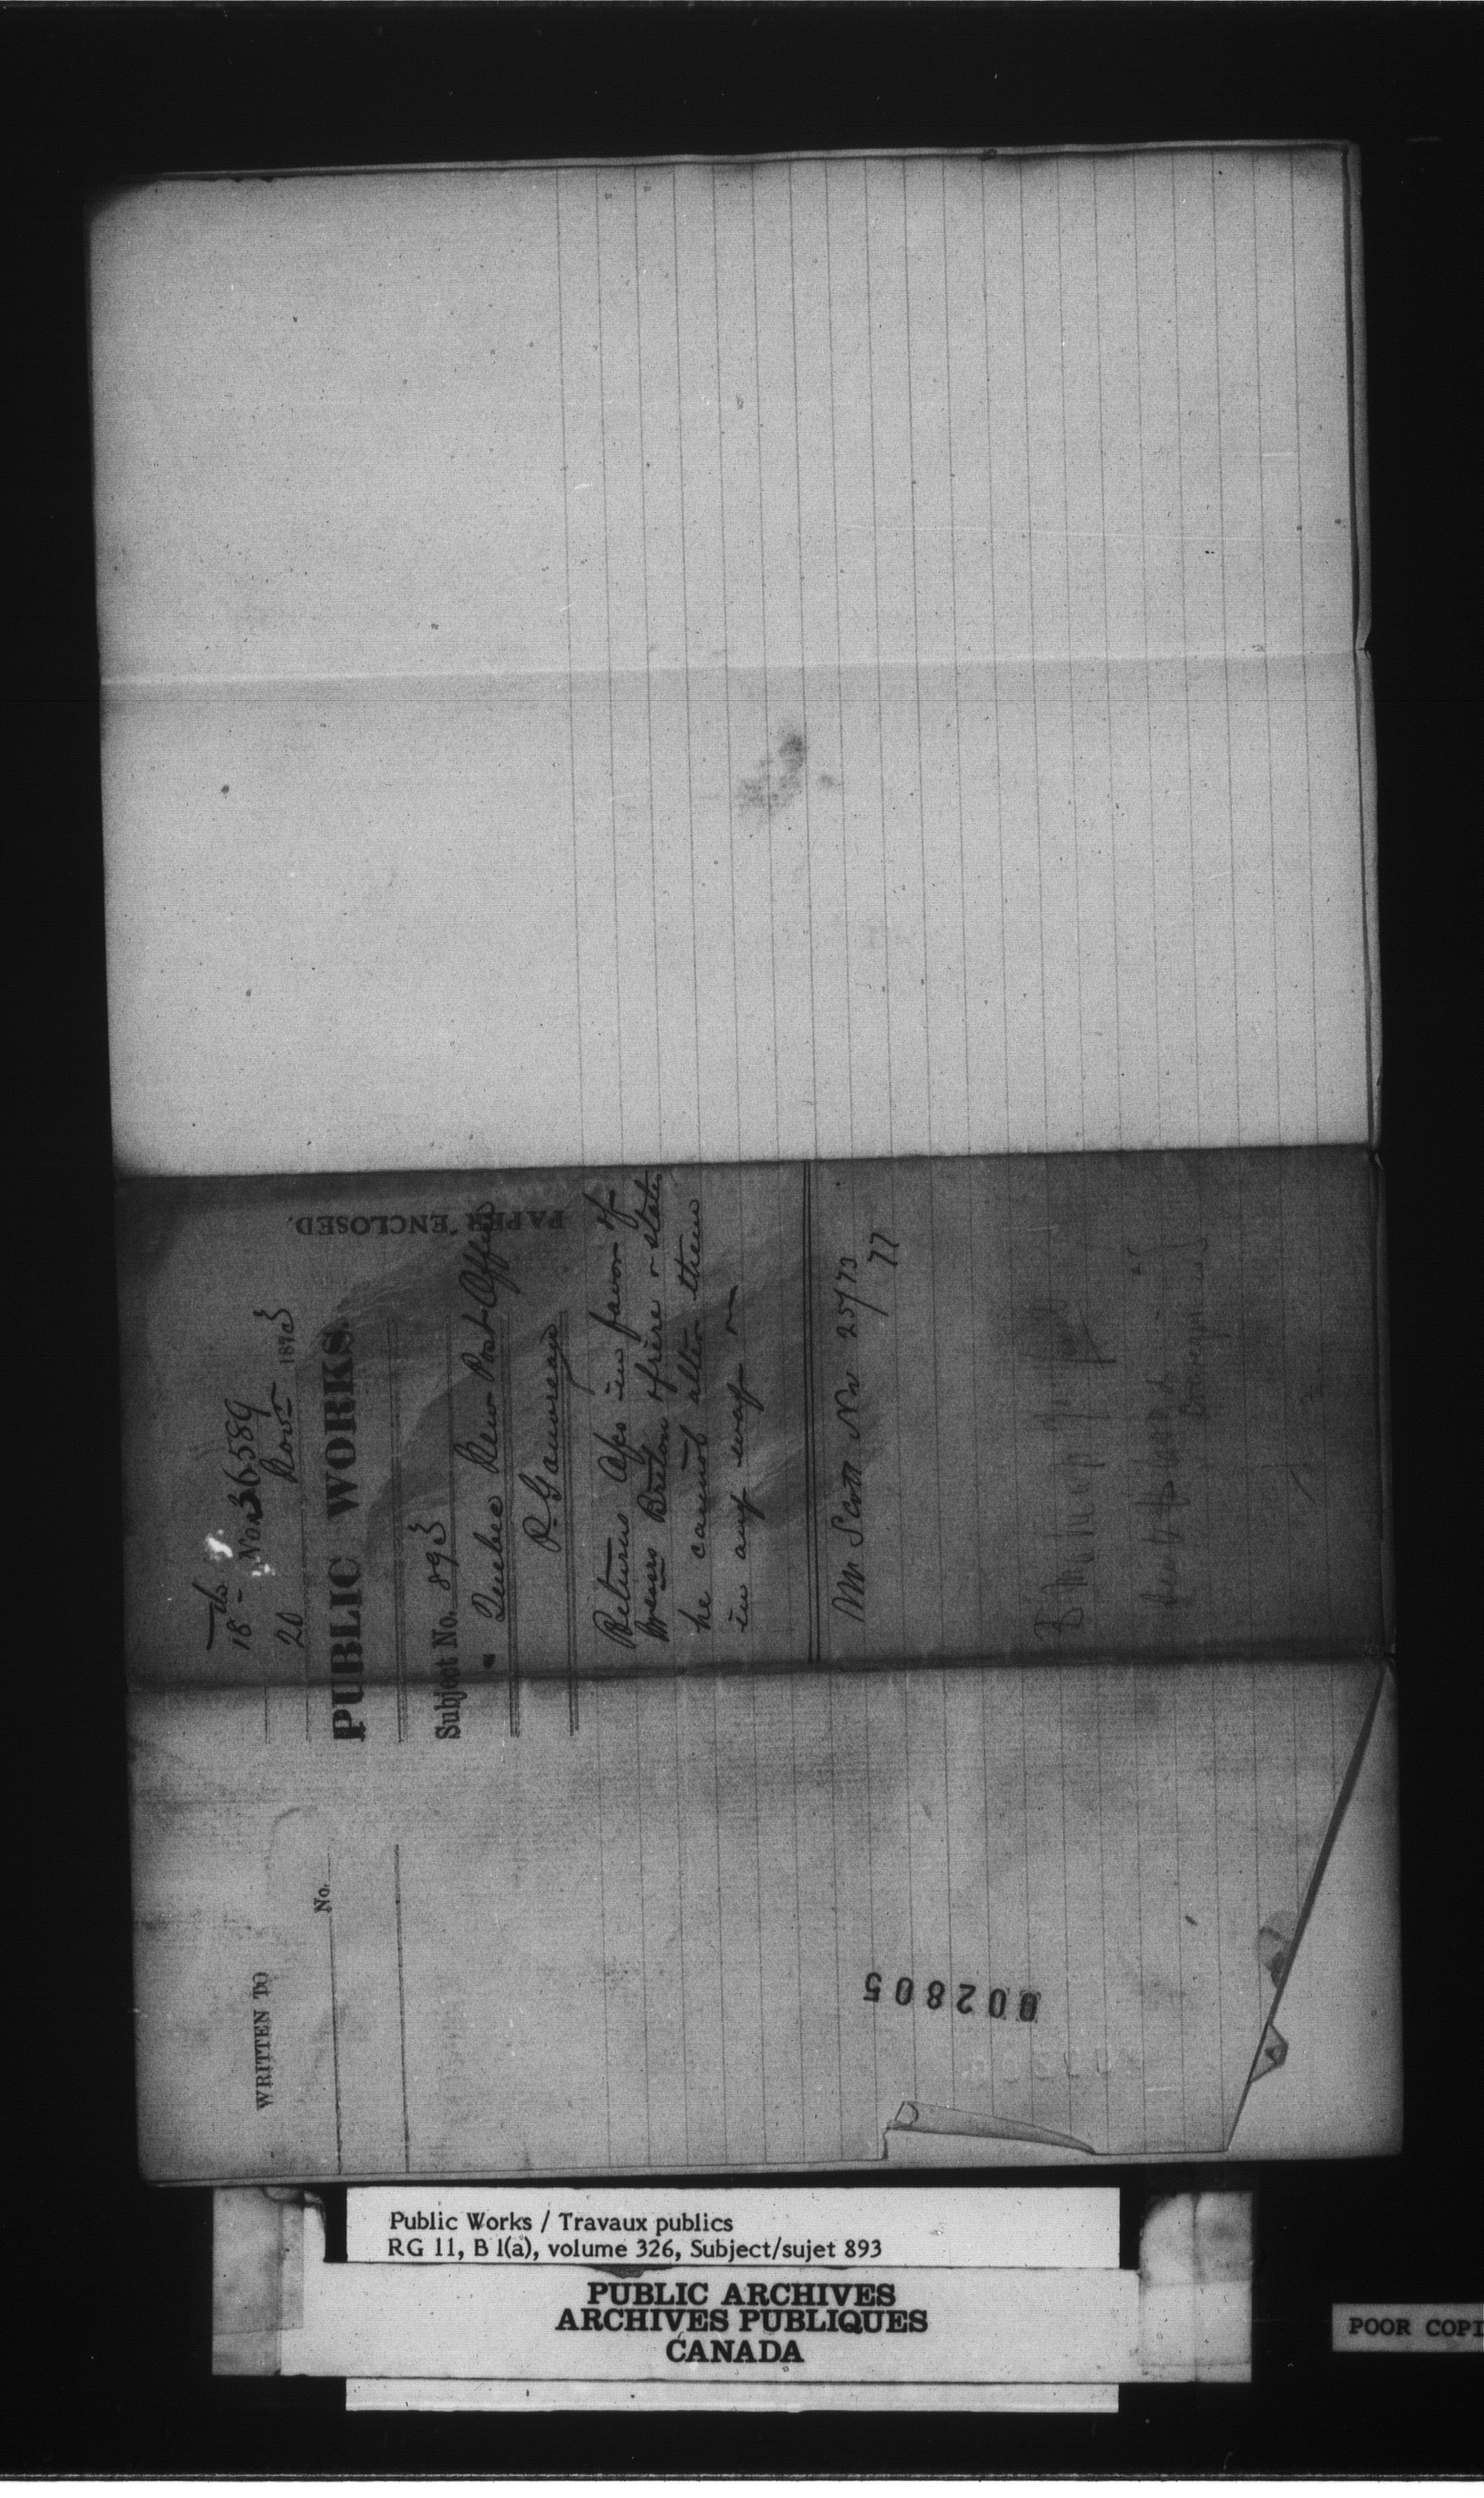 18th No. 36589
20 Novr 1873
PUBLIC WORKS.
Subject No. 893
Quebec New Post Office
R. Gauvreau
Returns a/cs in favor of
Messrs Breton & frère & states
he cannot alter them
in any way
Mr Scott Nov 25/73
77
PAPER ENCLOSED.
WRITTEN TO
No.
002805
Public Works / Travaux publics
RG 11, B 1(a), volume 326, Subject/sujet 893
PUBLIC ARCHIVES
ARCHIVES PUBLIQUES
CANADA
POOR COPI